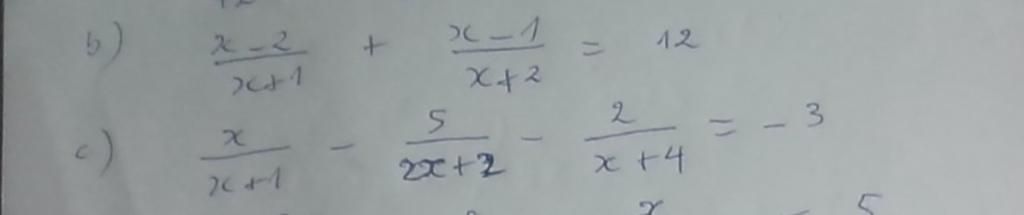 b) \frac{x-2}{x+1} + \frac{x-1}{x+2} = 12
c) \frac{x}{x+1} - \frac{5}{2x+2} - \frac{2}{x+4} = -3
x = 5